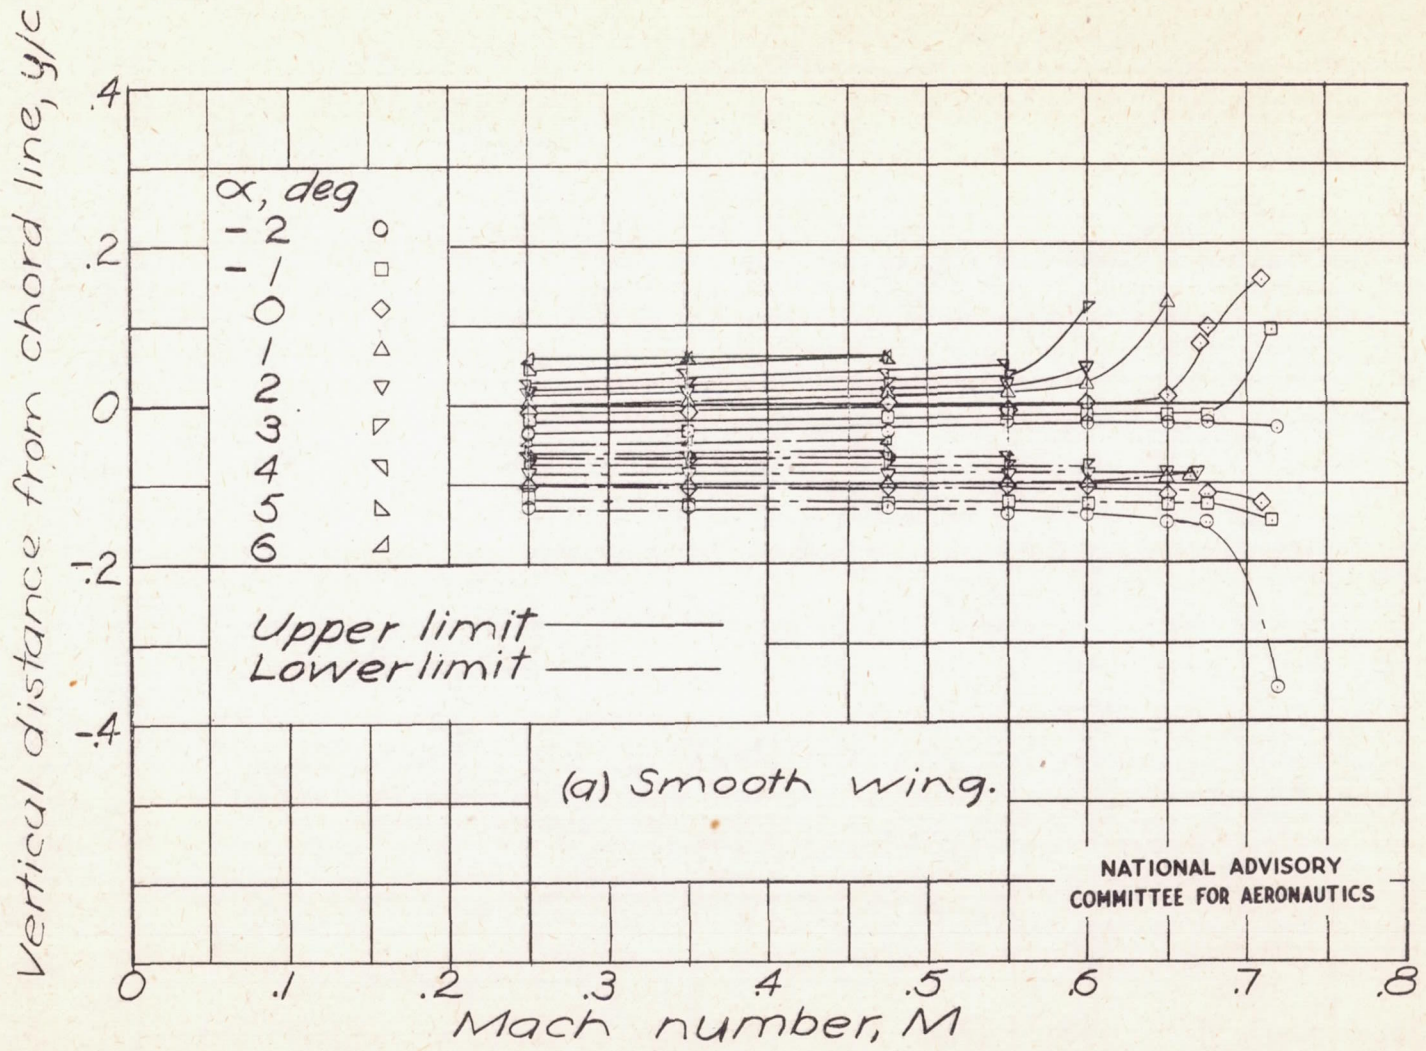 Vertical distance from chord line, y/c
.4
.2
0
-.2
-.4
α, deg
-2
-1
0
1
2
3
4
5
6
Upper limit
Lower limit
(a) Smooth wing.
NATIONAL ADVISORY
COMMITTEE FOR AERONAUTICS
0 .1 .2 .3 .4 .5 .6 .7 .8
Mach number, M